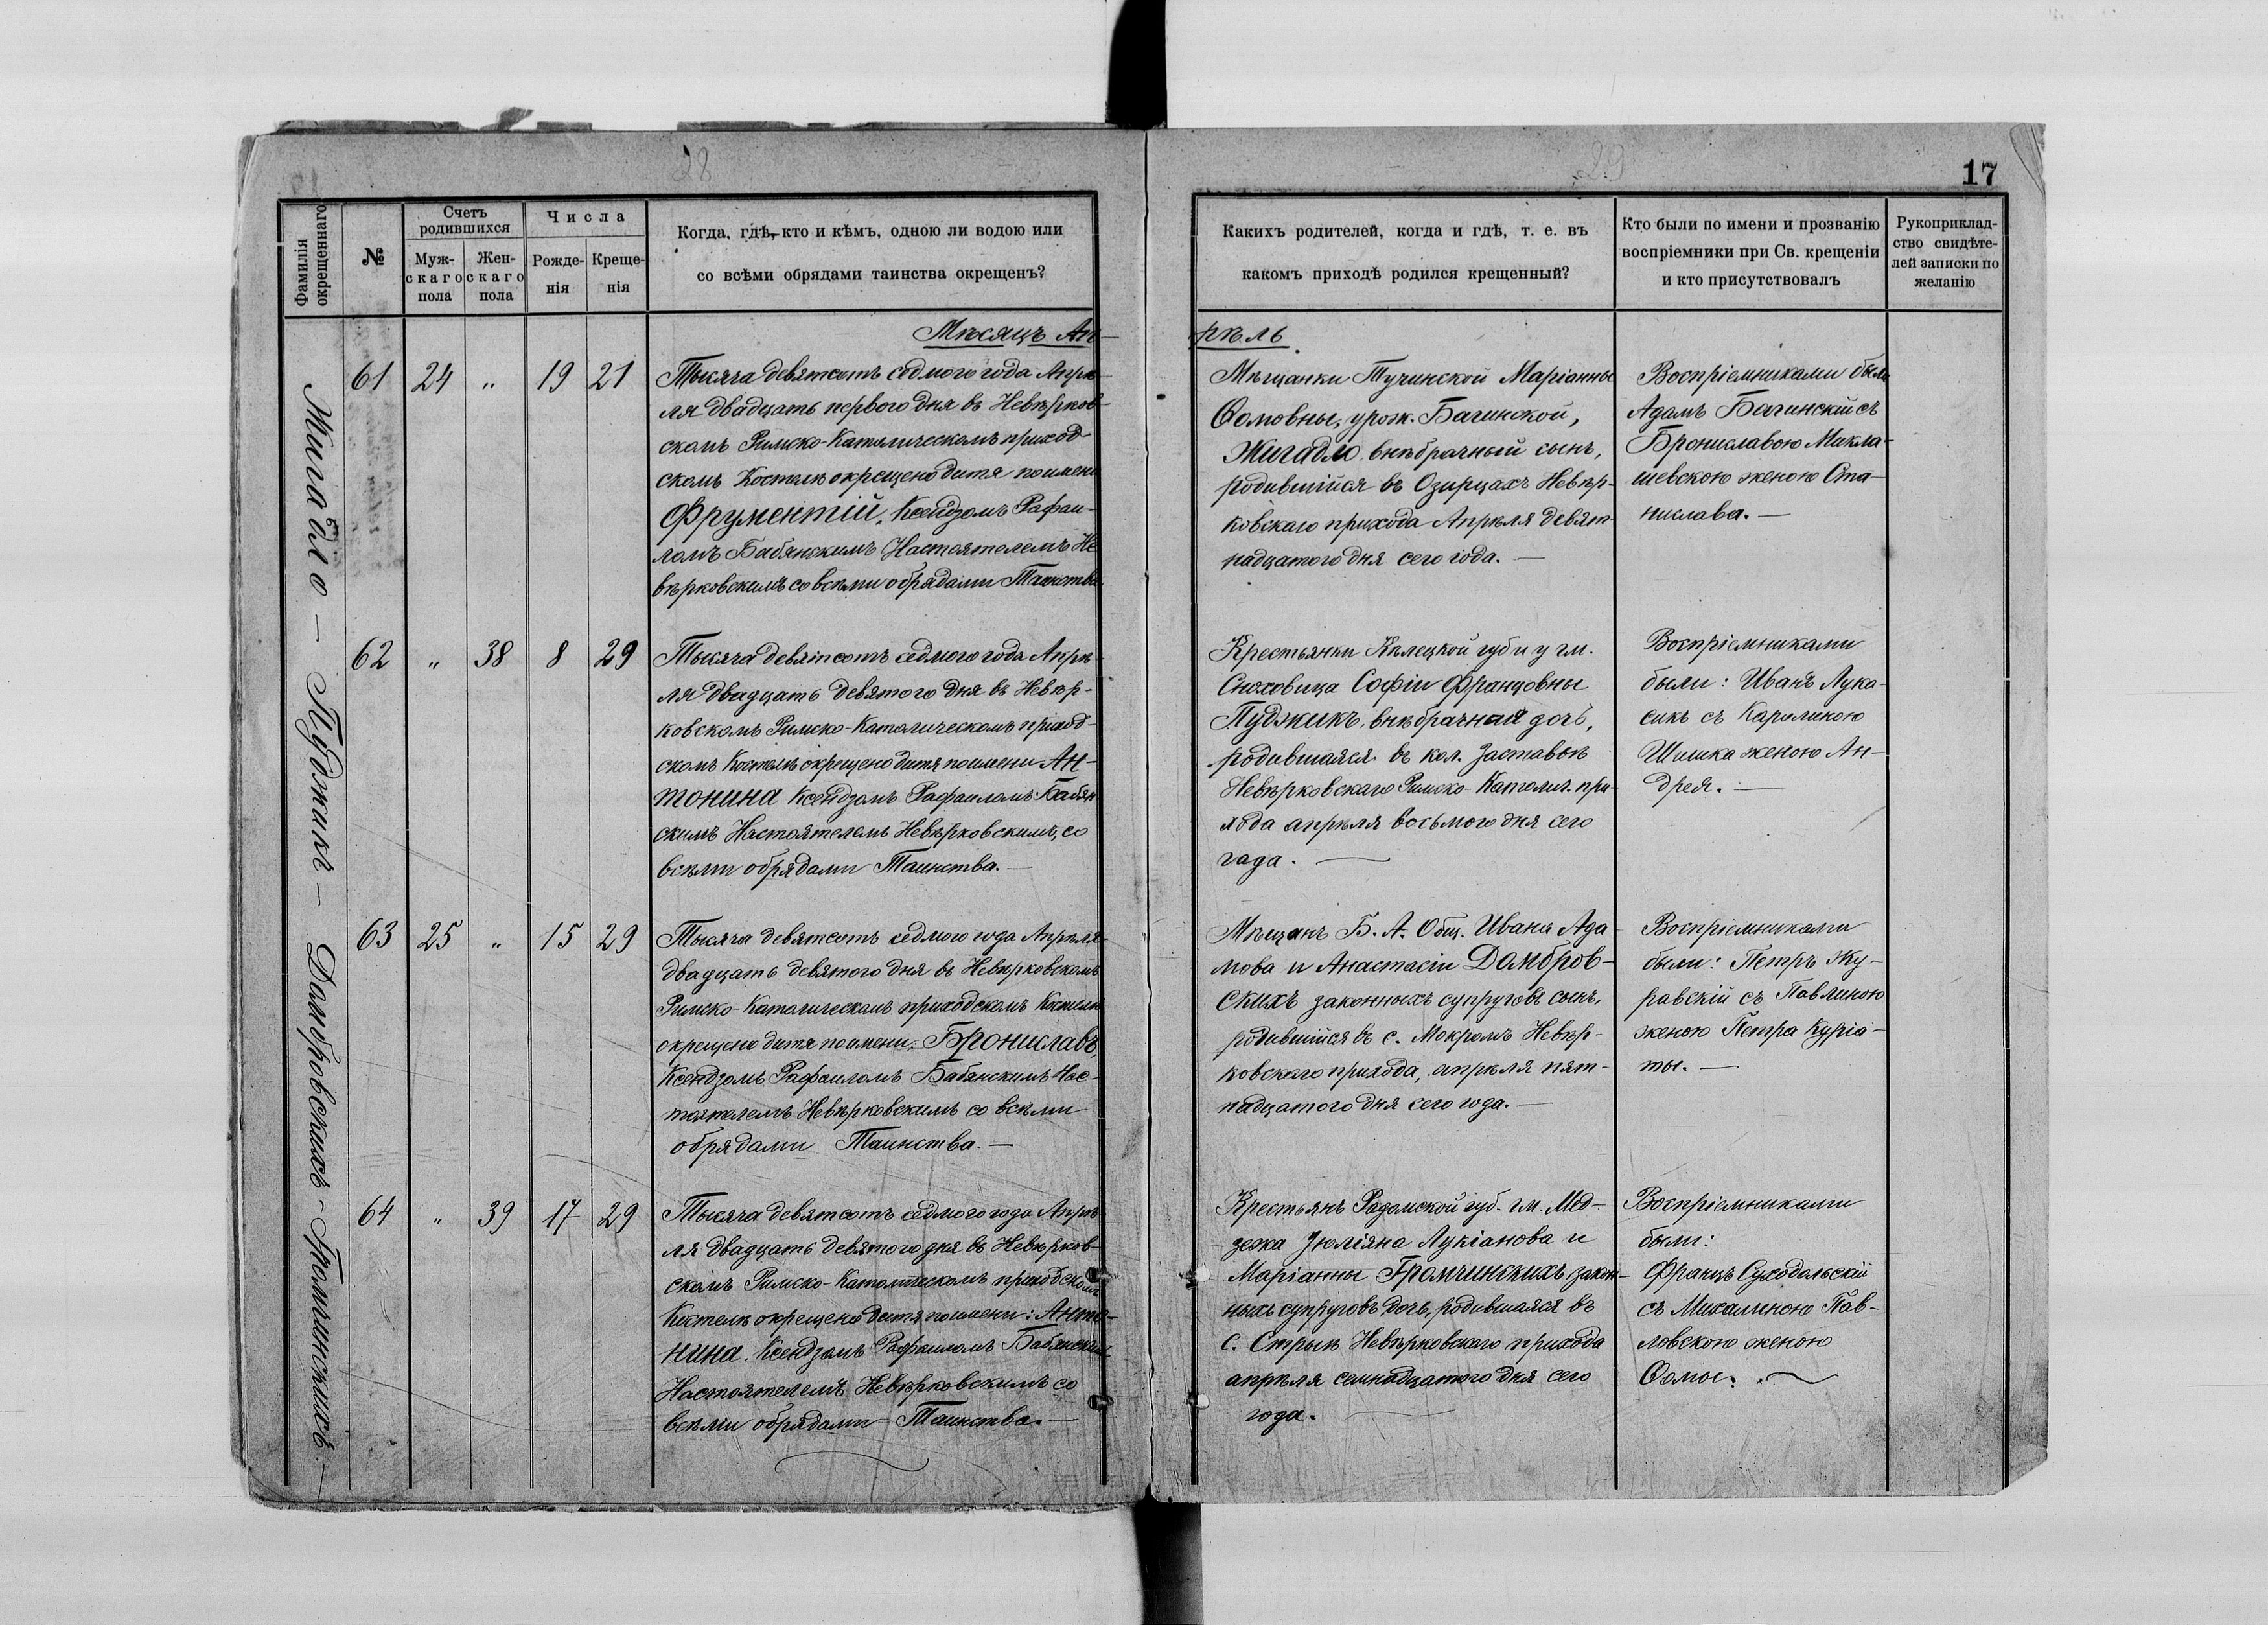 28
29
17
Фамилія
окрещеннаго
№
Счетъ
родившихся
Муж-
скаго
пола
Жен-
скаго
пола
Числа
Рожде-
нія
Креще-
нія
Когда, гдѣ, кто и кѣмъ, одною ли водою или
со всѣми обрядами таинства окрещенъ?
Какихъ родителей, когда и гдѣ, т. е. въ
какомъ приходѣ родился крещенный?
Кто были по имени и прозванію
воспріемники при Св. крещеніи
и кто присутствовалъ
Рукоприклад-
ство свидѣте-
лей записки по
желанію
Мѣсяцъ Ап-
рѣль
Жигадло - Пуджикъ - Домбровскихъ - Громчинскихъ. -
61 24 „ 19 21
Тысяча девятсотъ седмого года Апрѣ-
ля двадцать первого дня въ Невѣрков-
скомъ Римско-Католическомъ приход-
скомъ Костелѣ окрещено дитя по имени
Фрументій, Ксендзомъ Рафаи-
ломъ Бабянскимъ Настоятелемъ Не-
вѣрковскимъ со всѣми обрядами Таинства.
Мѣщанки Тучинской Маріанны
Ѳомовны, урож. Багинской,
Жигадло, внѣбрачный сынъ,
родившійся въ Озирцахъ Невѣр-
ковскаго прихода Апрѣля девят-
надцатого дня сего года. —
Воспріемниками были
Адамъ Багинскій съ
Брониславою Микла-
шевскою женою Ста-
нислава. —
62 „ 38 8 29
Тысяча девятсотъ седмого года Апрѣ-
ля двадцать девятого дня въ Невѣр-
ковскомъ Римско-Католическомъ приход-
скомъ Костелѣ окрещено дитя по имени Ан-
тонина Ксендзомъ Рафаиломъ Бабян-
скимъ Настоятелемъ Невѣрковскимъ, со
всѣми обрядами Таинства. —
Крестьянки Кѣлецкой губ и у гм.
Сноховица Софіи Францовны
Пуджикъ, внѣбрачная дочь,
родившаяся въ кол. Заставѣ
Невѣрковскаго Римско-Католич. при-
хода апрѣля восьмого дня сего
года. —
Воспріемниками
были: Иванъ Лука-
сикъ съ Каролиною
Шишка женою Ан-
дрея. —
63 25 „ 15 29
Тысяча девятсотъ седмого года Апрѣля
двадцать девятого дня въ Невѣрковскомъ
Римско-Католическомъ приходскомъ Костелѣ
окрещено дитя по имени: Брониславъ,
Ксендзомъ Рафаиломъ Бабянскимъ Нас-
тоятелемъ Невѣрковскимъ со всѣми
обрядами Таинства. —
Мѣщанъ Б. А. Общ. Ивана Ада-
мова и Анастасіи Домбров-
скихъ законныхъ супруговъ сынъ,
родившійся въ с. Мокромъ Невѣр-
ковского прихода, апрѣля пят-
надцатого дня сего года. —
Воспріемниками
были: Петръ Жу-
равскій съ Павлиною
женою Петра Куріа-
ты. —
64 „ 39 17 29
Тысяча девятсотъ седмого года Апрѣ-
ля двадцать девятого дня въ Невѣрков-
скомъ Римско-Католическомъ приходскомъ
Костелѣ окрещено дитя по имени: Анто-
нина. Ксендзомъ Рафаиломъ Бабянскимъ
Настоятелемъ Невѣрковскимъ со
всѣми обрядами Таинства. —
Крестьянъ Радомской губ. гм. Мод-
зежа Юліяна Лукіанова и
Маріанны Громчинскихъ закон-
ныхъ супруговъ дочь, родившаяся въ
с. Стрыѣ Невѣрковского прихода
апрѣля семнадцатого дня сего
года. —
Воспріемниками
были:
Францъ Суходольскій
съ Михалиною Пав-
ловскою женою
Ѳомы. —